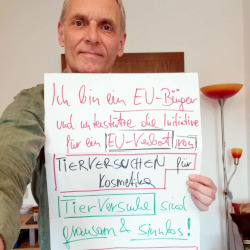 Ich bin ein EU-Bürger
und unterstütze die Initiative
für ein EU-Verbot von
TIERVERSUCHEN für
Kosmetika
Tierversuche sind
grausam & sinnlos!